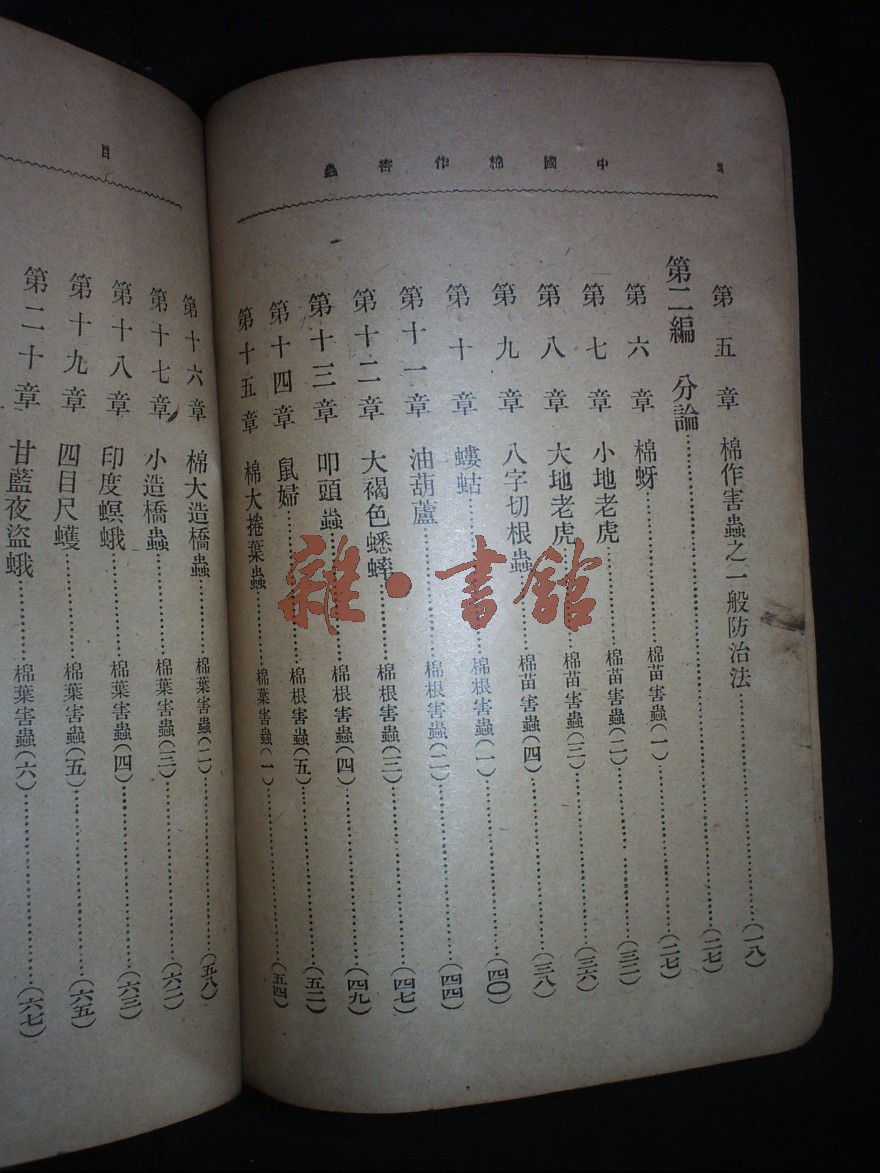 中國棉作害蟲
第五章 棉作害蟲之一般防治法……(一八)
第二編 分論……(二七)
第六章 棉蚜……棉苗害蟲(一)……(二七)
第七章 小地老虎……棉苗害蟲(二)……(三二)
第八章 大地老虎……棉苗害蟲(三)……(三六)
第九章 八字切根蟲……棉苗害蟲(四)……(三八)
第十章 螻蛄……棉根害蟲(一)……(四〇)
第十一章 油葫蘆……棉根害蟲(二)……(四四)
第十二章 大褐色蟋蟀……棉根害蟲(三)……(四七)
第十三章 叩頭蟲……棉根害蟲(四)……(四九)
第十四章 鼠婦……棉根害蟲(五)……(五二)
第十五章 棉大捲葉蟲……棉葉害蟲(一)……(五四)
目
第十六章 棉大造橋蟲……棉葉害蟲(二)……(五八)
第十七章 小造橋蟲……棉葉害蟲(三)……(六二)
第十八章 印度螟蛾……棉葉害蟲(四)……(六三)
第十九章 四目尺蠖……棉葉害蟲(五)……(六五)
第二十章 甘藍夜盜蛾……棉葉害蟲(六)……(六七)
雜·書館